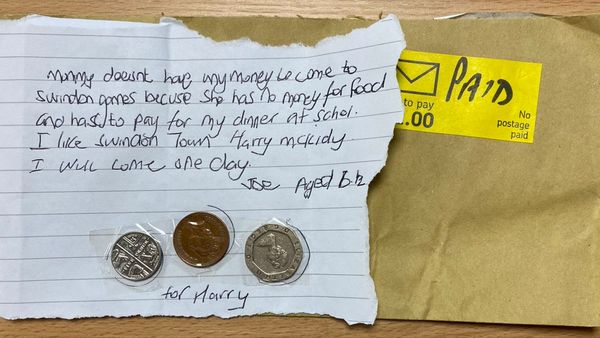 Mummy doesnt have myMoney to come to
Swindon games becuse She has no money for food
and hass to pay for my dinner at schol.
I like swindon Town Harry mckidy
I will come one day.
Joe Aged 6 1/2
for Harry
PAID
to pay
.00
No
postage
paid